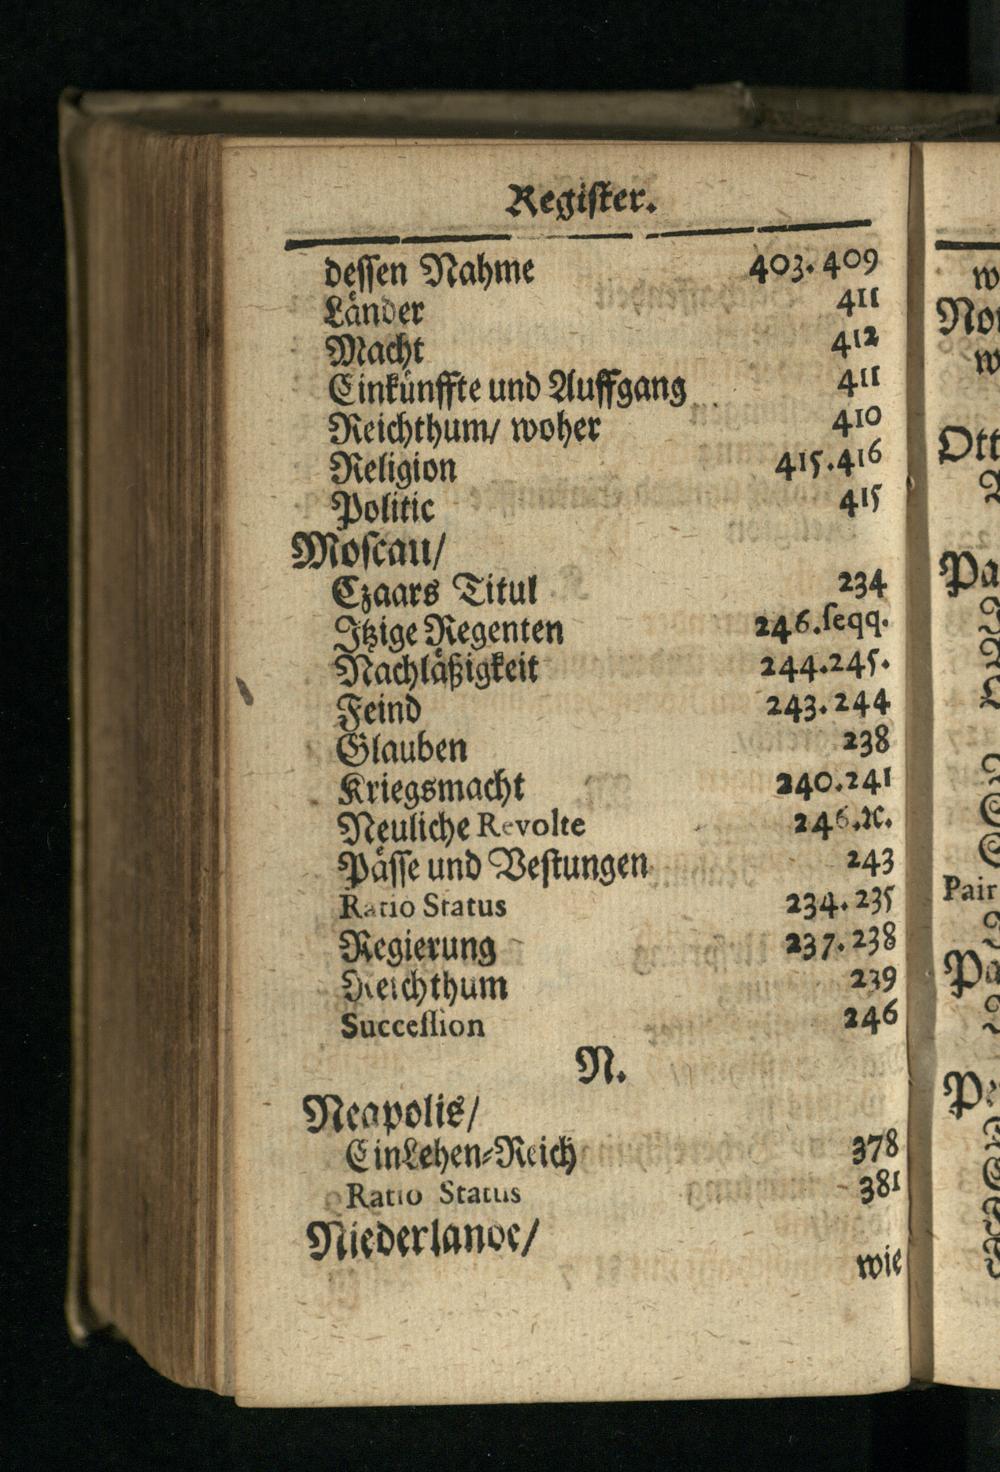 Register.
dessen Nahme 403. 409
Länder 411
Macht 412
Einkünffte und Auffgang 411
Reichthum/ woher 410
Religion 415.416
Politic 415
Moscau/
Czaars Titul 234
Jtzige Regenten 246.seqq.
Nachläßigkeit 244.245.
Feind 243.244
Glauben 238
Kriegsmacht 240.241
Neuliche Revolte 246.ꝛc.
Pässe und Vestungen 243
Ratio Status 234.235
Regierung 237.238
Reichthum 239
Succession 246
N.
Neapolis/
Ein Lehen-Reich 378
Ratio Status 381
Niederlande/
wie
w
No
w
Ott
Pa
Pair
Pa
Pe